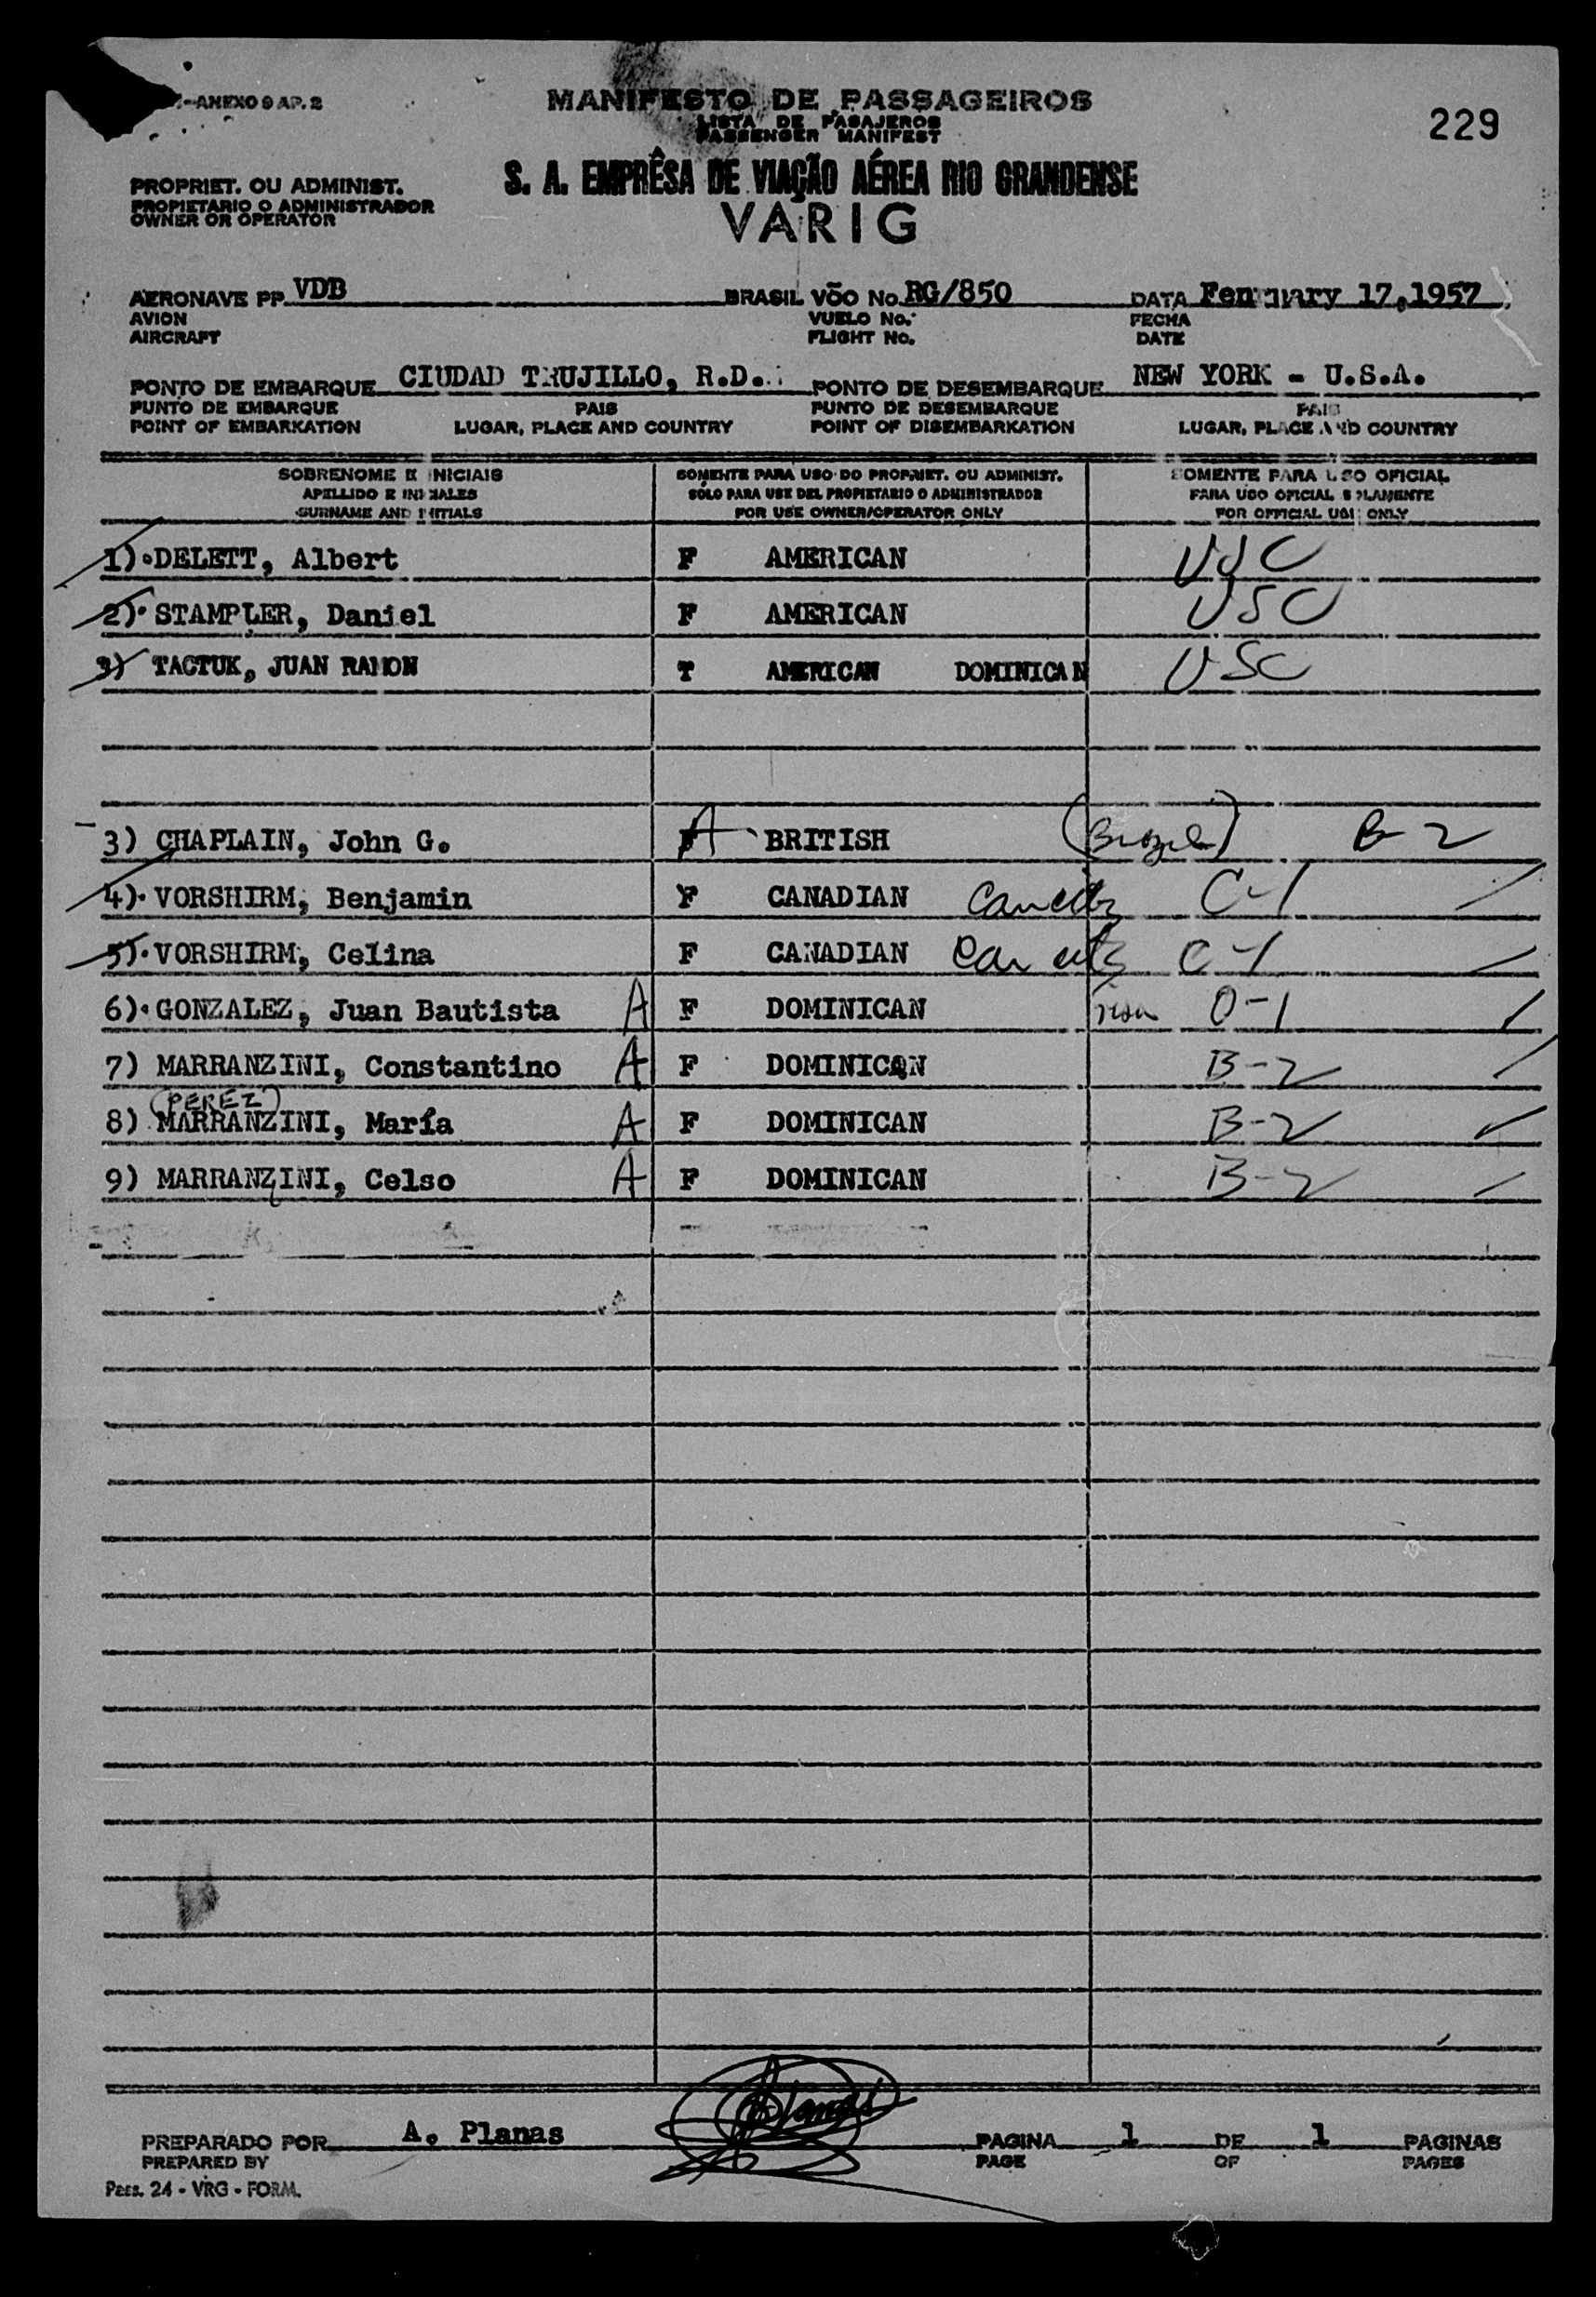 -ANEXO 9 AP. 2
MANIFESTO DE PASSAGEIROS
LISTA DE PASAJEROS
PASSENGER MANIFEST
229
S. A. EMPRÊSA DE VIAÇÃO AÉREA RIO GRANDENSE
VARIG
PROPRIET. OU ADMINIST.
PROPIETARIO O ADMINISTRADOR
OWNER OR OPERATOR
AERONAVE PP VDB BRASIL VÕO No. RG/850 DATA 17,1957
AVION VUELO No. FECHA
AIRCRAFT FLIGHT No. DATE
PONTO DE EMBARQUE CIUDAD TRUJILLO, R.D. PONTO DE DESEMBARQUE NEW YORK - U.S.A.
PUNTO DE EMBARQUE PAIS PUNTO DE DESEMBARQUE PAIS
POINT OF EMBARKATION LUGAR, PLACE AND COUNTRY POINT OF DISEMBARKATION LUGAR, PLACE AND COUNTRY
SOBRENOME E INICIAIS SOMENTE PARA USO DO PROPRIET. OU ADMINIST. SOMENTE PARA USO OFICIAL
APELLIDO E INICIALES SÓLO PARA USE DEL PROPIETARIO O ADMINISTRADOR PARA USO OFICIAL SOLAMENTE
SURNAME AND INITIALS FOR USE OWNER/OPERATOR ONLY FOR OFFICIAL USE ONLY
1) DELETT, Albert F AMERICAN USC
2) STAMPLER, Daniel F AMERICAN USC
3) TACTUK, JUAN RAMON T AMERICAN DOMINICAN USC
3) CHAPLAIN, John G. A BRITISH (Brazil) B-2
4) VORSHIRM, Benjamin F CANADIAN Canada C-1
5) VORSHIRM, Celina F CANADIAN Canada C-1
6) GONZALEZ, Juan Bautista A F DOMINICAN O-1
7) MARRANZINI, Constantino A F DOMINICAN B-2
(PEREZ)
8) MARRANZINI, María A F DOMINICAN B-2
9) MARRANZINI, Celso A F DOMINICAN B-2
PREPARADO POR A. Planas A Planas PAGINA 1 DE 1 PAGINAS
PREPARED BY PAGE OF PAGES
Pass. 24 - VRG - FORM.